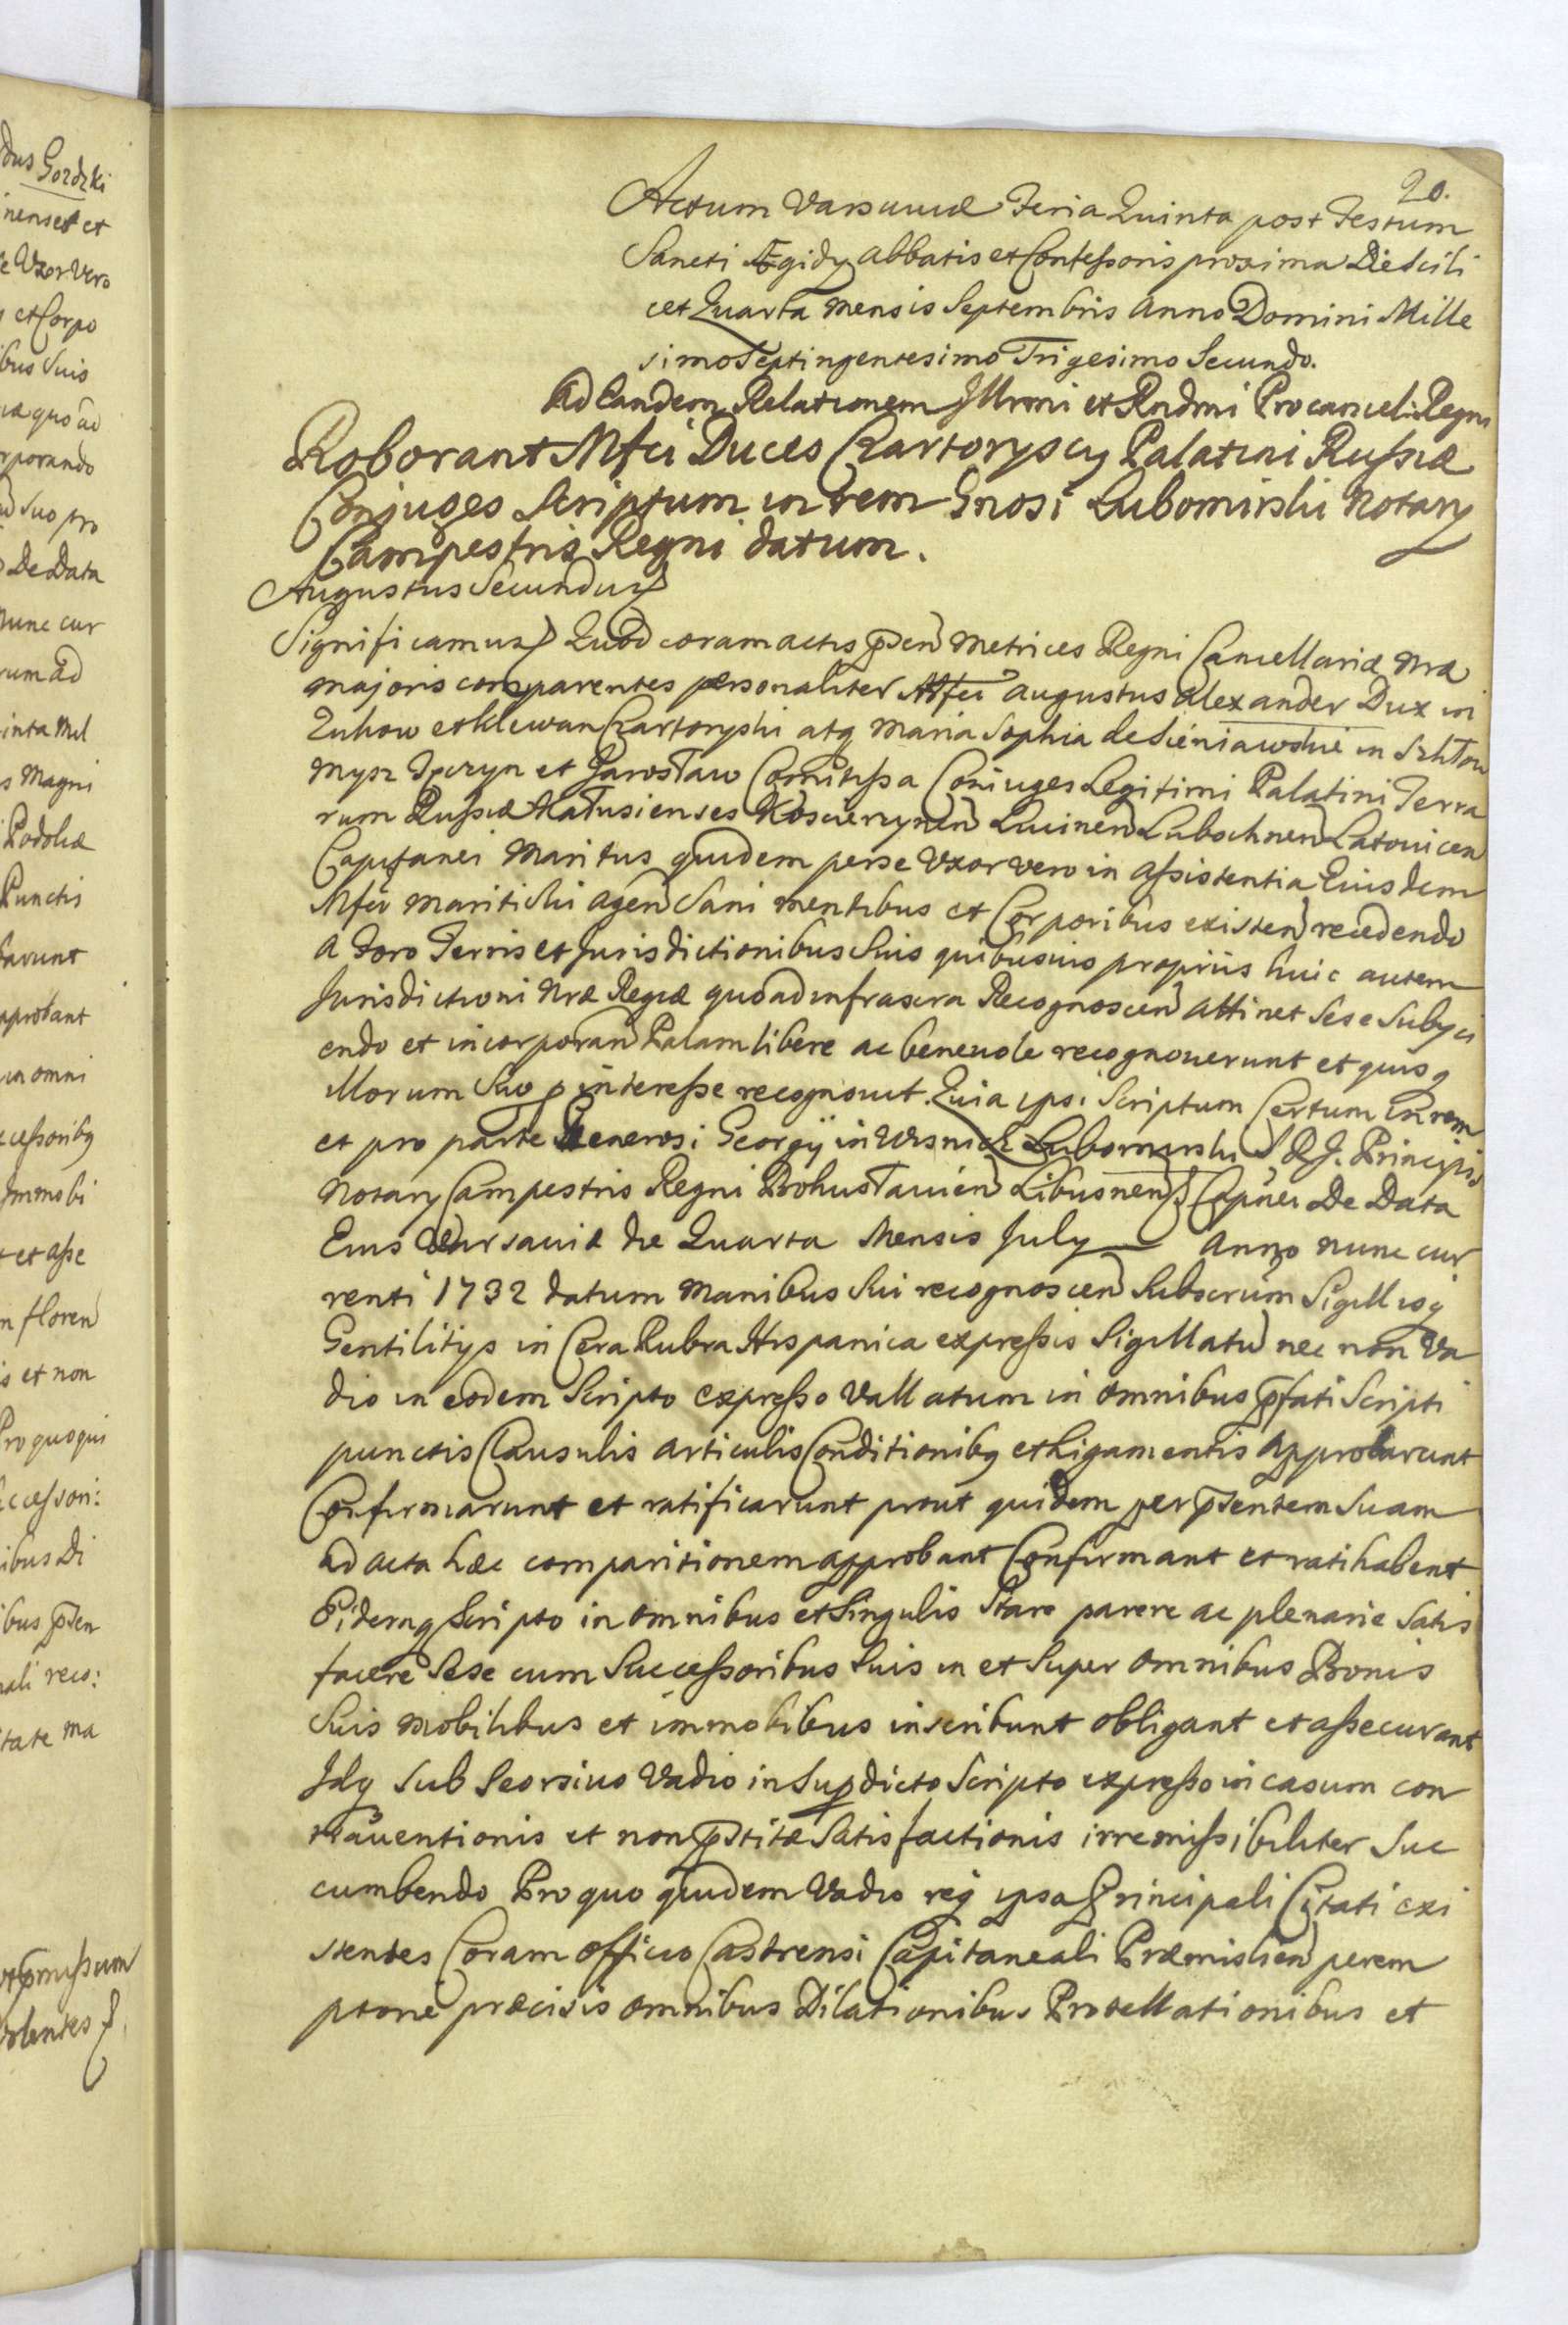 20.
Actum Varsaviæ Feria Quinta post Festum
Sancti Ægidy Abbatis et Confessoris proxima Die Scili
cet Quarta mensis Septembris Anno Domini Mille
simo Septingentesimo Trigesimo Secundo.
Ad Eandem Relationem Illmi et Rndmi Procancel: Regni
Roborant Mfci Duces Czartoryscy Palatini Russiæ
Conjuges Scriptum in rem Gnosi Lubomirski Notary
Campestris Regni datum.
Augustus Secundus
Significamus Quod coram actis psen Metrices Regni Cancellariæ Nræ
majoris comparentes personaliter Mfci Augustus Alexander Dux in
Zukow et Klewan Czartoryski atq Maria Sophia de Sieniawskie in Szkłow
Mysz et Jarosław Comitissa Coniuges Legitimi Palatini Terra
rum Russiæ Kałusienses Koscierzynen Lucinen Lubochnen Latovicen
Capitanei Maritus quidem per se Uxor vero in assistentia Eiusdem
Mfci mariti sui agen Sani mentibus et Corporibus existen recedendo
a Foro Terris et Jurisdictionibus Suis quibusvis propriis huic autem
Jurisdictioni Nræ Regiæ quo ad infrascra Recognoscen attinet sese Subyci
endo et incorporan Palam libere ac benevole recognoverunt et quisq
Illorum Suo p interesse recognovit. Quia ipsi Scriptum Certum In rem
et pro parte Generosi Georgij in Wisnicz Lubomirski S. R. J. Principis
Notary Campestris Regni Bohusłavien Libusnens Capnei De Data
Eius Varsaviæ die Quarta Mensis July Anno nunc cur
renti 1732 datum manibus Sui recognoscen Subscrum Sigillisq
Gentilitys in Cera Rubra Hispanica expressis Sigillatu nec non Va
dio in eodem Scripto expresso Vallatum in omnibus pfati Scripti
punctis Clausulis articulis Conditionibq et Ligamentis Approbarunt
Confirmarunt et ratificarunt prout quidem per psentem Suam
ad acta hæc comparitionem approbant Confirmant et ratihabent
Eidemq Scripto in omnibus et Singulis Stare parere ac plenarie Satis
facere Sese cum Successoribus Suis in et Super omnibus Bonis
Suis mobilibus et immobilibus inscribunt obligant et assecurant
Idq Sub Seorsivo Vadio in Supdicto Scripto expresso in casum con
traventionis et non pstitæ Satisfactionis irremissibiliter Suc
cumbendo Pro quo quidem Vadio req ipsa Principali Citati exi
stentes Coram Officio Castrensi Capitaneali Præmislien perem
ptorie præcisis omnibus Dilationibus Protellationibus et
dus Gordzki
nenses et
e Uxor Vero
et Corpo
bus Suis
quo ad
rporando
d suo pro
De Data
Nunc cur
rum ad
inta Mil
s Magni
Podoliæ
Punctis
barunt
pprobant
in omni
ccessoribq
Immobi
t et asse
n floren
is et non
Pro quoqui
ccessori:
ibus Di
ibus psen
ali reco:
tate ma
pmissum
olentes